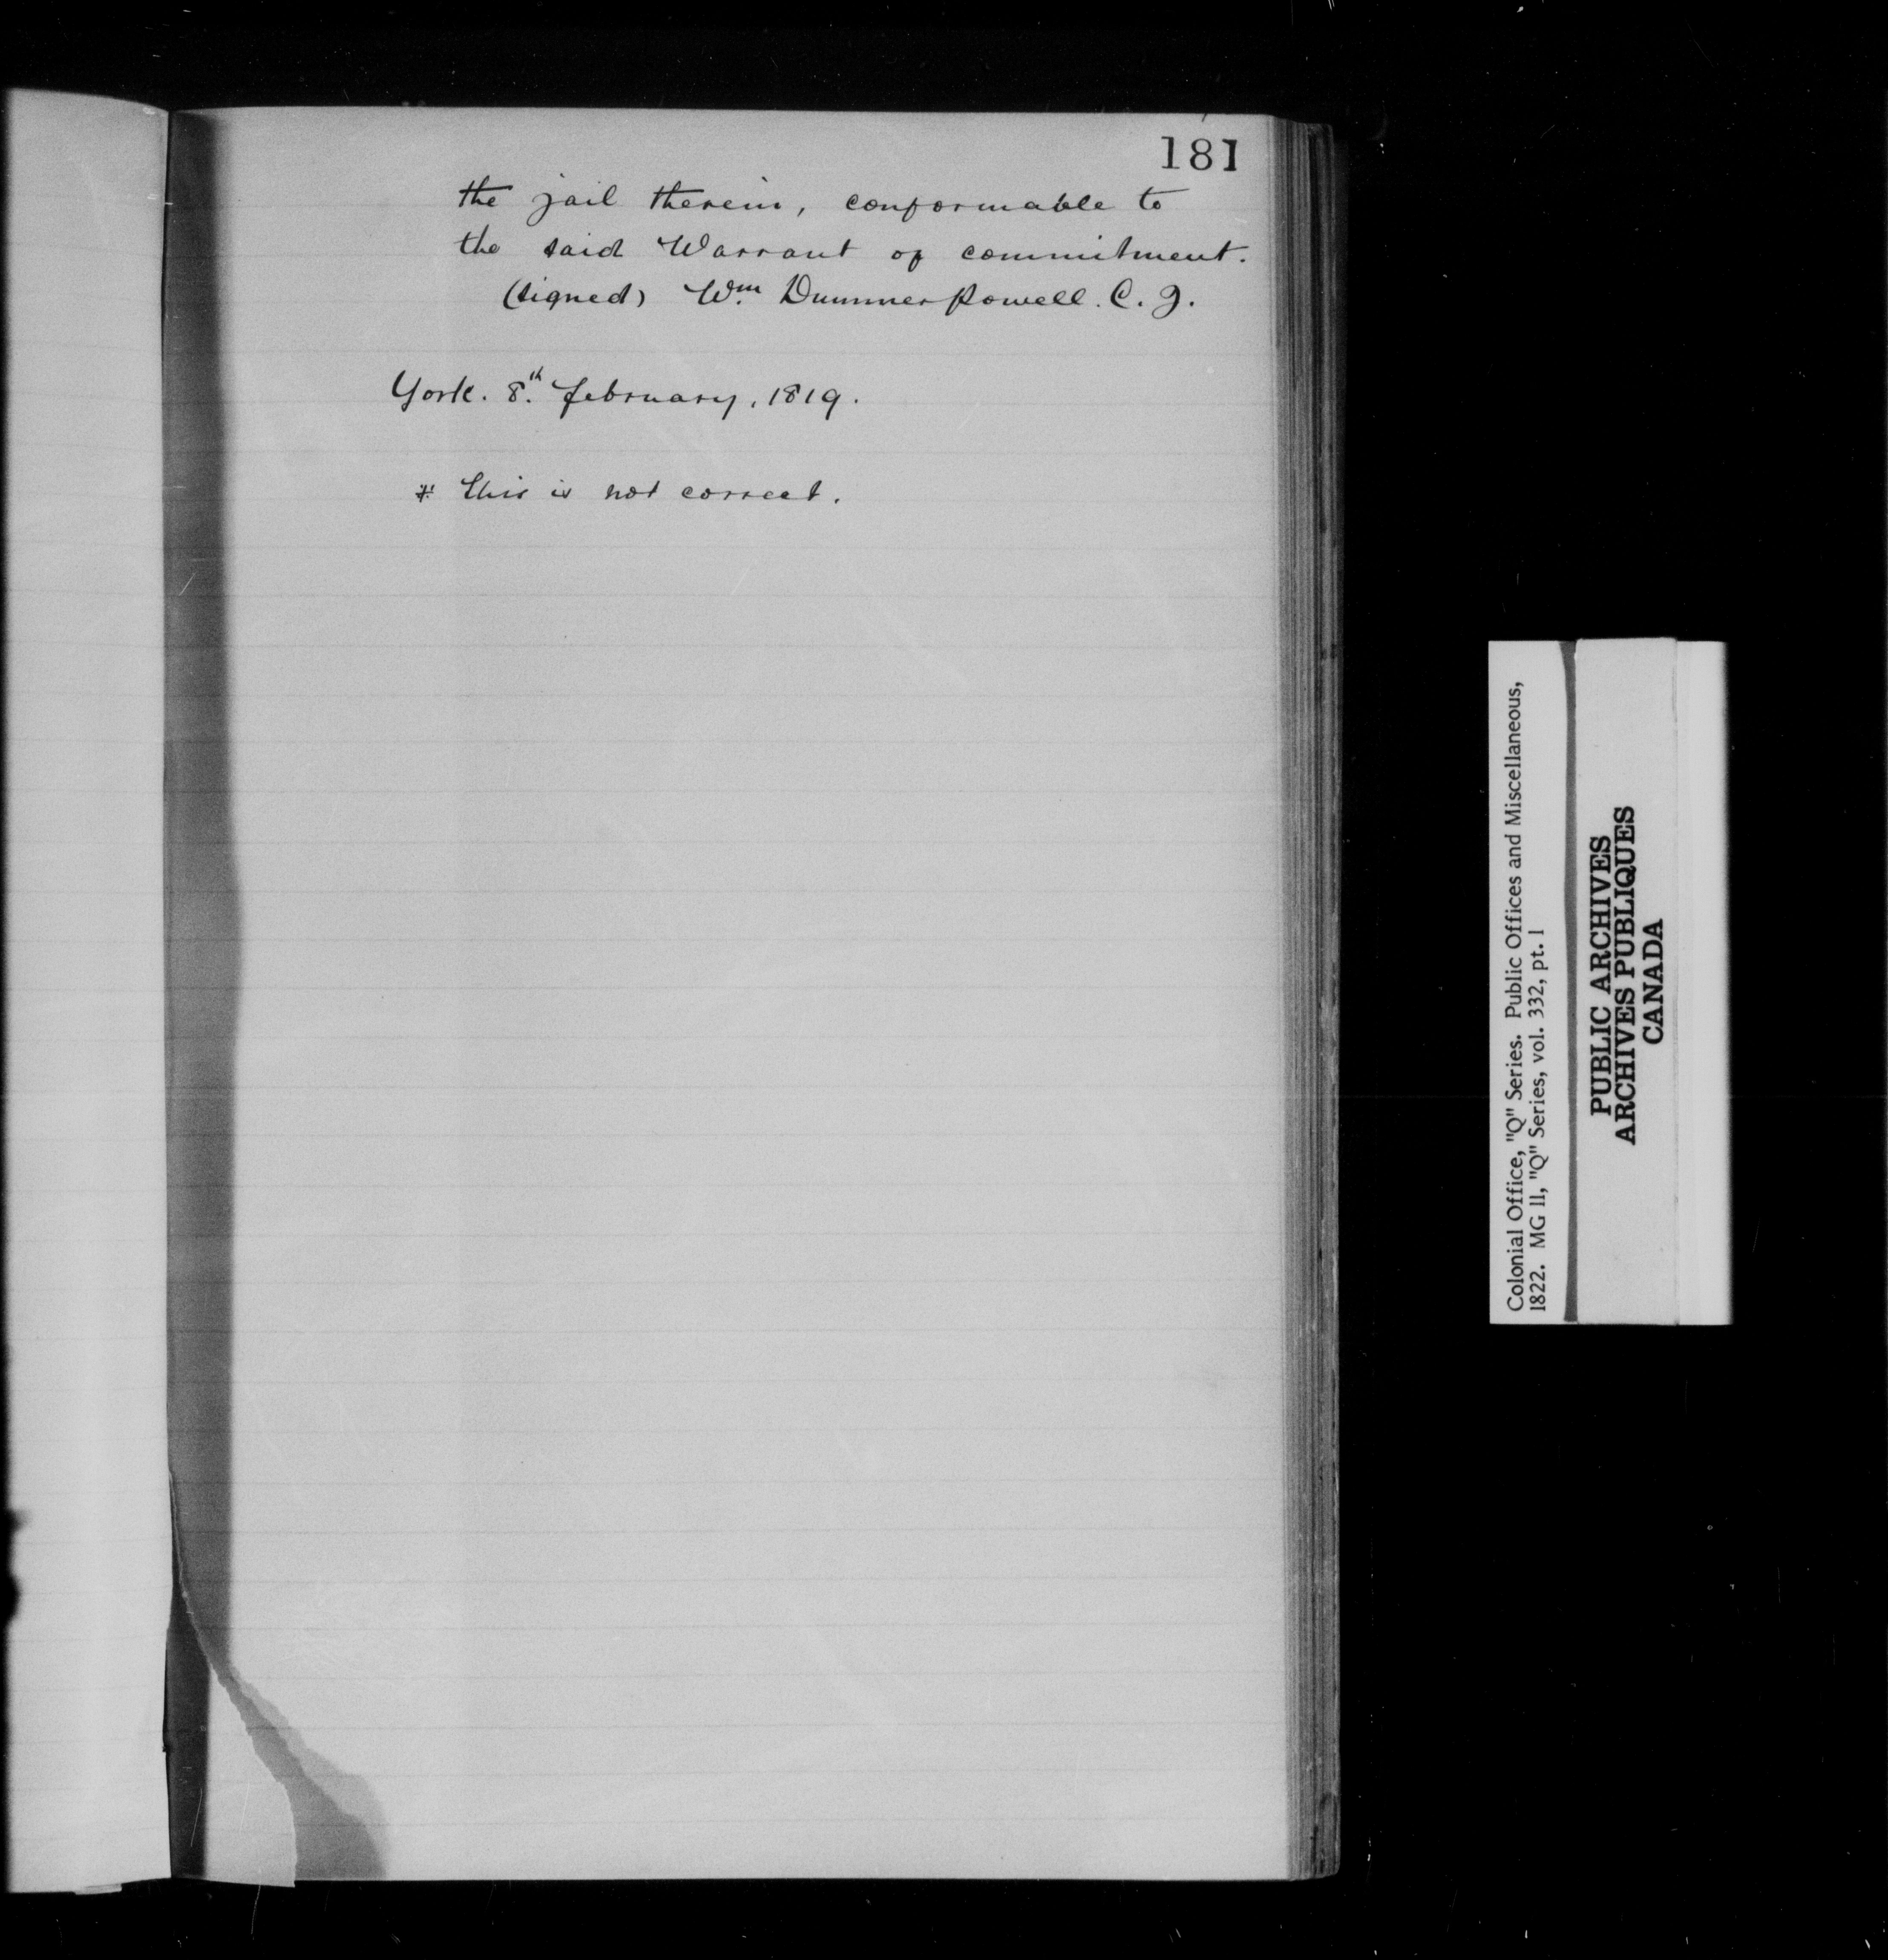 181
the jail therein, conformable to
the said Warrant of commitment.
(signed) Wm. Dummer Powell. C. J.
York. 8th. February, 1819.
* This is not correct.
Colonial Office, "Q" Series. Public Offices and Miscellaneous,
1822. MG 11, "Q" Series, vol. 332, pt. 1
PUBLIC ARCHIVES
ARCHIVES PUBLIQUES
CANADA